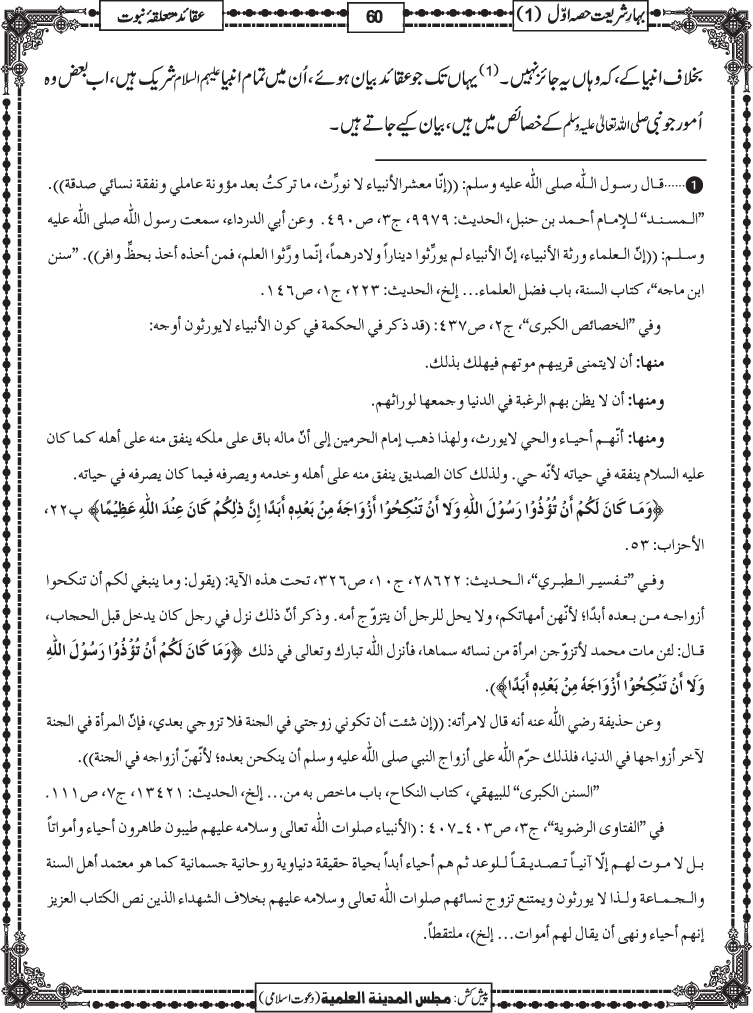 بہار شریعت حصہ اوّل (1)
60
عقائد متعلقۂ نبوت
بخلاف انبیا کے، کہ وہاں یہ جائز نہیں۔(1) یہاں تک جو عقائد بیان ہوئے، اُن میں تمام انبیا علیہم السلام شریک ہیں، اب بعض وہ
اُمور جو نبی صلی اللہ تعالیٰ علیہ وسلم کے خصائص میں ہیں، بیان کیے جاتے ہیں۔
1......قال رسول الله صلى الله عليه وسلم: ((إنّا معشر الأنبياء لا نورِّث، ما تركتُ بعد مؤونة عاملي ونفقة نسائي صدقة)).
”المسند“ للإمام أحمد بن حنبل، الحديث: ٩٩٧٩، ج٣، ص٤٩٠. وعن أبي الدرداء، سمعت رسول الله صلى الله عليه
وسلم: ((إنّ العلماء ورثة الأنبياء، إنّ الأنبياء لم يورِّثوا ديناراً ولا درهماً، إنّما ورَّثوا العلم، فمن أخذه أخذ بحظٍّ وافر)). ”سنن
ابن ماجه“، كتاب السنة، باب فضل العلماء... إلخ، الحديث: ٢٢٣، ج١، ص١٤٦.
وفي ”الخصائص الكبرى“، ج٢، ص٤٣٧: (قد ذكر في الحكمة في كون الأنبياء لا يورثون أوجه:
منها: أن لا يتمنى قريبهم موتهم فيهلك بذلك.
ومنها: أن لا يظن بهم الرغبة في الدنيا وجمعها لوراثهم.
ومنها: أنّهم أحياء والحي لا يورث، ولهذا ذهب إمام الحرمين إلى أنّ ماله باق على ملكه ينفق منه على أهله كما كان
عليه السلام ينفقه في حياته لأنّه حي. ولذلك كان الصديق ينفق منه على أهله وخدمه ويصرفه فيما كان يصرفه في حياته.
﴿وَمَا كَانَ لَكُمْ أَنْ تُؤْذُوْا رَسُوْلَ اللهِ وَلَا أَنْ تَنْكِحُوْا أَزْوَاجَهٗ مِنْ بَعْدِهٖ أَبَدًا إِنَّ ذٰلِكُمْ كَانَ عِنْدَ اللهِ عَظِيْمًا﴾ پ٢٢،
الأحزاب: ٥٣.
وفي ”تفسير الطبري“، الحديث: ٢٨٦٢٢، ج١٠، ص٣٢٦، تحت هذه الآية: (يقول: وما ينبغي لكم أن تنكحوا
أزواجه من بعده أبدًا؛ لأنّهن أمهاتكم، ولا يحل للرجل أن يتزوّج أمه. وذكر أنّ ذلك نزل في رجل كان يدخل قبل الحجاب،
قال: لئن مات محمد لأتزوّجن امرأة من نسائه سماها، فأنزل الله تبارك وتعالى في ذلك ﴿وَمَا كَانَ لَكُمْ أَنْ تُؤْذُوْا رَسُوْلَ اللهِ
وَلَا أَنْ تَنْكِحُوْا أَزْوَاجَهٗ مِنْ بَعْدِهٖ أَبَدًا﴾).
وعن حذيفة رضي الله عنه أنه قال لامرأته: ((إن شئت أن تكوني زوجتي في الجنة فلا تزوجي بعدي، فإنّ المرأة في الجنة
لآخر أزواجها في الدنيا، فلذلك حرّم الله على أزواج النبي صلى الله عليه وسلم أن ينكحن بعده؛ لأنّهنّ أزواجه في الجنة)).
”السنن الكبرى“ للبيهقي، كتاب النكاح، باب ماخص به من... إلخ، الحديث: ١٣٤٢١، ج٧، ص١١١.
في ”الفتاوى الرضوية“، ج٣، ص٤٠٣ـ٤٠٧: (الأنبياء صلوات الله تعالى وسلامه عليهم طيبون طاهرون أحياء وأمواتاً
بل لا موت لهم إلّا آنياً تصديقاً للوعد ثم هم أحياء أبداً بحياة حقيقة دنياوية روحانية جسمانية كما هو معتمد أهل السنة
والجماعة ولذا لا يورثون ويمتنع تزوج نسائهم صلوات الله تعالى وسلامه عليهم بخلاف الشهداء الذين نص الكتاب العزيز
إنهم أحياء ونهى أن يقال لهم أموات... إلخ)، ملتقطاً.
پیش کش: مجلس المدینۃ العلمیۃ (دعوت اسلامی)